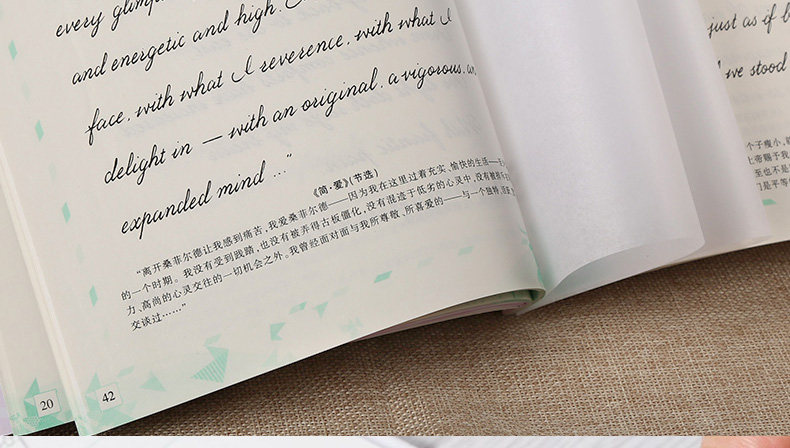 every
and energetic and high. I
face, with what I reverence, with what I
delight in — with an original, a vigorous, an
expanded mind ..."
《简·爱》(节选)
"离开桑菲尔德让我感到痛苦,我爱桑菲尔德——因为我在这里过着充实、愉快的生活——
的一个时期。我没有受到践踏,也没有被弄得古板僵化,没有混迹于低劣的心灵中,没有被排斥
力、高尚的心灵交往的一切机会之外。我曾经面对面与我所尊敬、所喜爱的——与一个独特、活跃
交谈过……"
20
42
just as if b
we stood
个子瘦小,
上帝赐予我
至也不是
们是平等